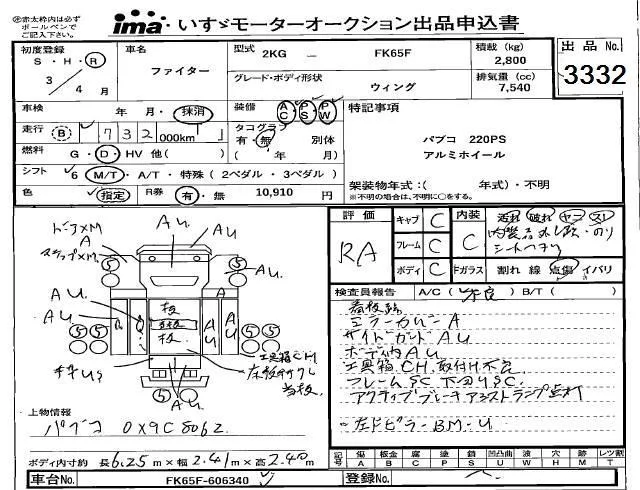 ※赤太枠内は必ず
ボールペンで
ご記入下さい。
ima いすゞモーターオークション出品申込書
初度登録
S・H・R
3 / 4 月
車名
ファイター
型式 2KG ー FK65F
グレード・ボディ形状
ウィング
積載 (kg)
2,800
排気量 (cc)
7,540
出品 No.
3332
車検 年・月・抹消
装備 AC PS PW
走行 B 732 000km
タコグラフ
有・無 別体
( 年 月)
燃料 G・D・HV 他( )
シフト 6 M/T・A/T・特殊 (2ペダル・3ペダル)
色 指定 R券 有・無 10,910 円
特記事項
パブコ 220PS
アルミホイール
架装物年式:( 年式)・不明
※不明の場合は、不明に○をする。
評価
RA
キャブ C
フレーム C
ボディ C
内装 C
汚れ 破れ ヤニ スレ
シートヘタリ
Fガラス 割れ 線 点傷 イバリ
検査員報告 A/C ( 不良 ) B/T ( )
看板跡
ミラーカバーA
サイドガードAU
ボディ内AU
工具箱CH.取付け不良
フレームSC 下回りSC
アクティブブレーキアシストランプ点灯
左ドピラーBM-U
ステップ×M
A
AU
AU
AU
AU
AU
AU
AU
板
板
工具箱CH
当板
AU
5
上物情報
パブコ 0X9C8062
ボディ内寸約 長6.25m×幅2.41m×高2.40m
記号 傷 板金 腐 塗 錆 凹凸曲 波 穴 跡 レツ割
A B C P S U W H M T
車台No. FK65F-606340
登録No.